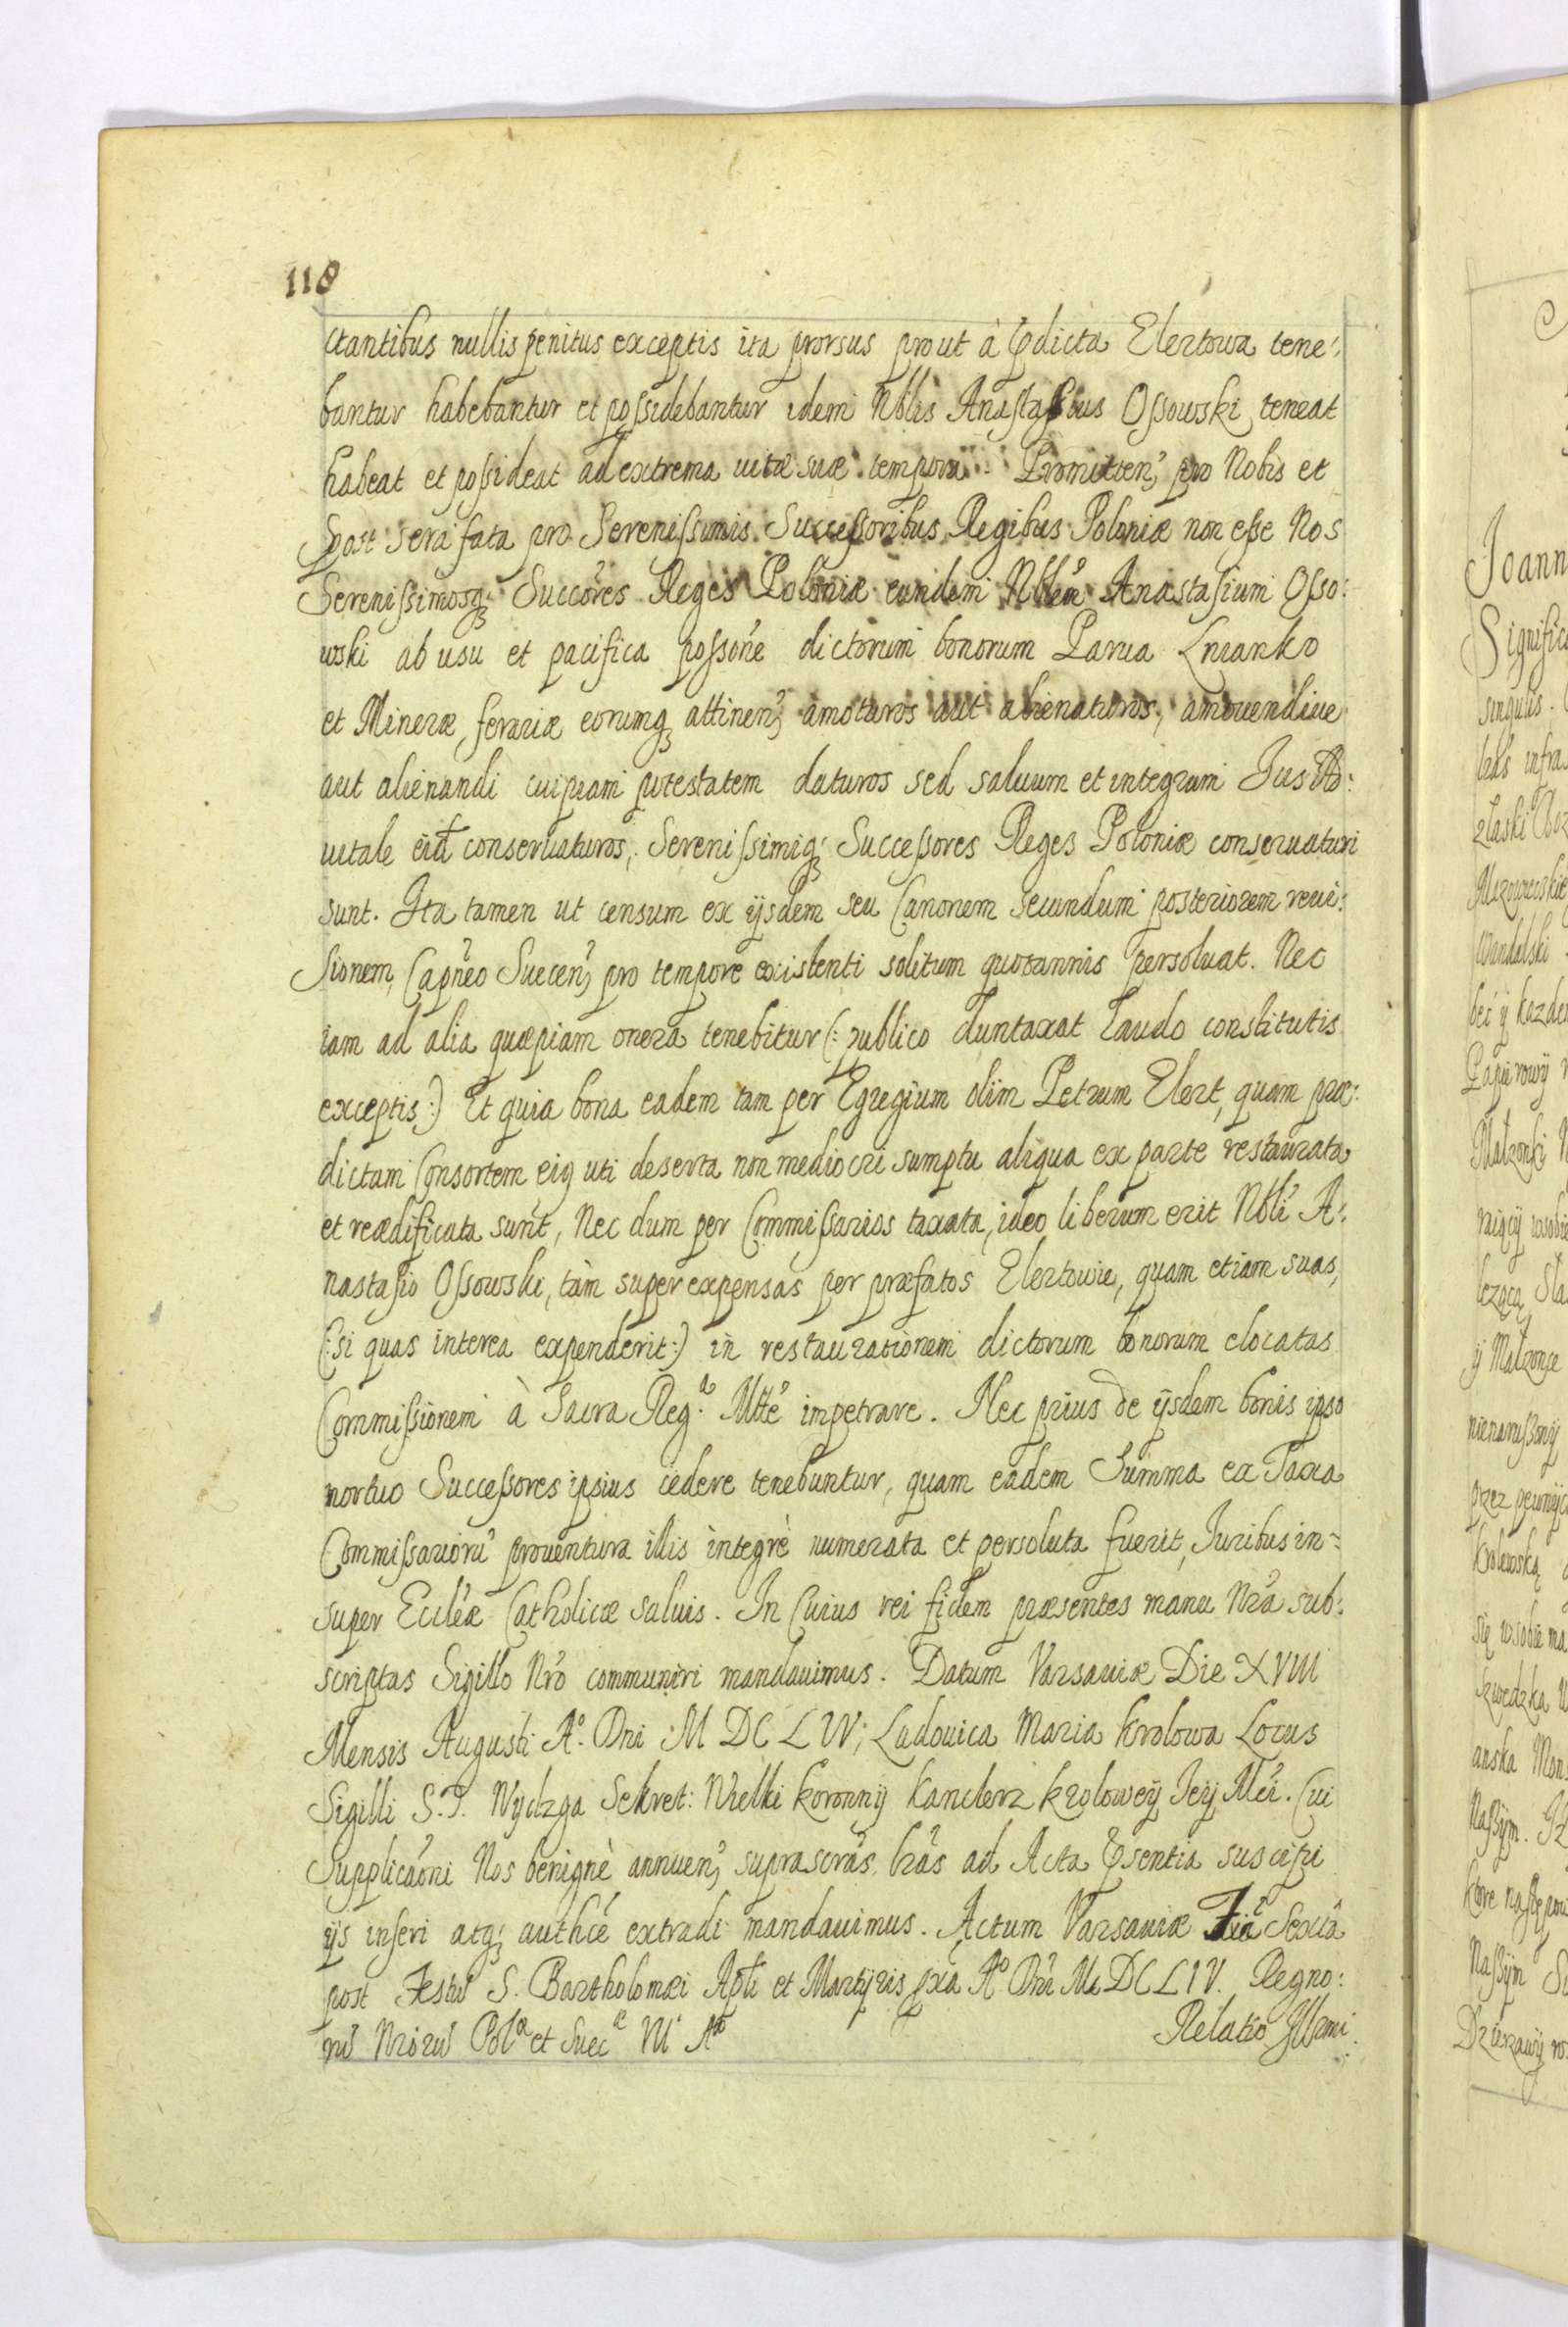 118
ctantibus nullis penitus exceptis ita prorsus prout à pdicta Elertowa tene:
bantur habebantur et possidebantur idem Nblis Anastasius Ossowski teneat
habeat et possideat ad extrema uitæ suæ tempora. Promitten, pro Nobis et
post sera fata pro Serenissimis Successoribus Regibus Poloniæ non esse Nos
Serenissimosq; Succores Reges Poloniæ eundem Nblem Anastasium Osso:
wski ab usu et pacifica possone dictorum bonorum Parua Lnianko
et Mineræ ferariæ eorumq attinen, amoturos aut alienaturos, amouendiue
aut alienandi cuipiam potestatem daturos sed saluum et integrum Jus Ad:
uitale eid conseruaturos, Serenissimiq; Successores Reges Poloniæ conseruaturi
sunt. Ita tamen ut censum ex ijsdem seu Canonem secundum posteriorem reui:
sionem, Capneo Suecen, pro tempore existenti solitum quotannis persoluat. Nec
iam ad alia quæpiam onera tenebitur (: publico duntaxat Laudo constitutis
exceptis :) Et quia bona eadem tam per Egregium olim Petrum Elert, quam præ:
dictam Consortem eig uti deserta non mediocri sumptu aliqua ex parte restaurata
et reædificata sunt, Nec dum per Commissarios taxata, ideo liberum erit Nbli A:
nastasio Ossowski, tàm super expensas per præfatos Elertowie, quam etiam suas,
(: si quas interea expenderit :) in restaurationem dictorum bonorum elocatas
Commissionem à Sacra Reg.a Mtte impetrare. Nec prius de ijsdem bonis ipso
mortuo Successores ipsius cedere tenebuntur, quam eadem Summa ex Taxa
Commissarioru prouentura illis integrè numerata et persoluta fuerit, Juribus in:
super Eccleæ Catholicæ saluis. In Cuius rei fidem præsentes manu Nra sub:
scriptas Sigillo Nro communiri mandauimus. Datum Varsauiæ Die XVIII
Mensis Augusti Ao. Dni M DC L IV; Ludouica Maria Krolowa Locus
Sigilli S. T. Wydzga Sekret: Wielki koronnÿ Kanclerz krolowey Jey Mci. Cui
Supplicaoni Nos benignè annuen, suprascras lras ad Acta psentia suscipi
ijs inseri atq; authce extradi mandauimus. Actum Varsauiæ Fia Sexta
post Festu S. Bartholomæi Apli et Martyris pxa Ao Dni M DC LIV. Regno:
ru Nroru Pol.æ et Suec.æ VI Ao
Relatio Jllmi